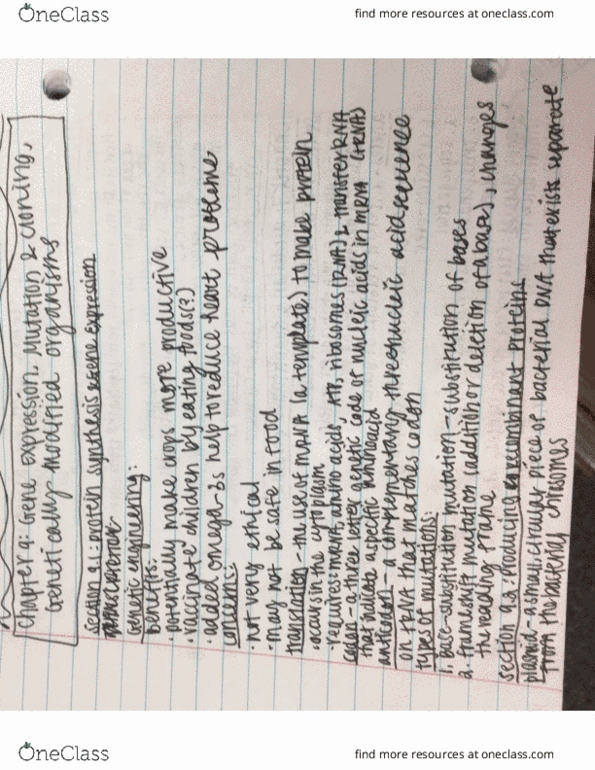 OneClass
find more resources at oneclass.com
Chapter 9: Gene Expression, Mutation & Cloning,
Genetically modified organisms
section 9.1: protein synthesis & gene expression
Genetic engineering:
benefits:
· potentially make crops more productive
· "vaccinate" children by eating foods(?)
· added omega-3s help to reduce heart problems
concerns:
· not very ethical
· may not be safe in food
translation - the use of mRNA (a template) to make protein
· occurs in the cytoplasm
· requires: mRNA, amino acids, ATP, ribosomes (rRNA) & transfer RNA (tRNA)
codon - a three letter genetic code of nucleic acids in mRNA
that indicate a specific amino acid
anticodon - a complementary three nucleic acid sequence
on tRNA that matches codon
types of mutations:
1. base-substitution mutation - substitution of bases
2. frameshift mutation (addition or deletion of a base), changes
the reading frame
section 9.2: Producing recombinant proteins
plasmid - a small circular piece of bacterial DNA that exists separate
from the bacterial
OneClass
find more resources at oneclass.com